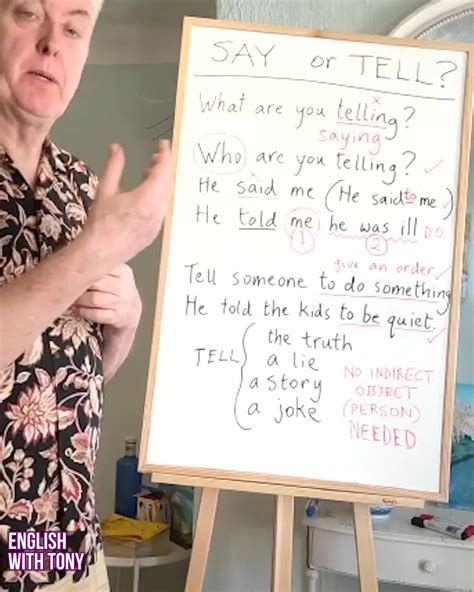 SAY or TELL?
What are you telling?
x
saying
Who are you telling? ✓
x
He said me (He said to me ✓)
He told me he was ill D.O.
1 2
give an order ✓
Tell someone to do something
He told the kids to be quiet. ✓
TELL
the truth
a lie
a story
a joke
NO INDIRECT
OBJECT
(PERSON)
NEEDED
ENGLISH
WITH TONY